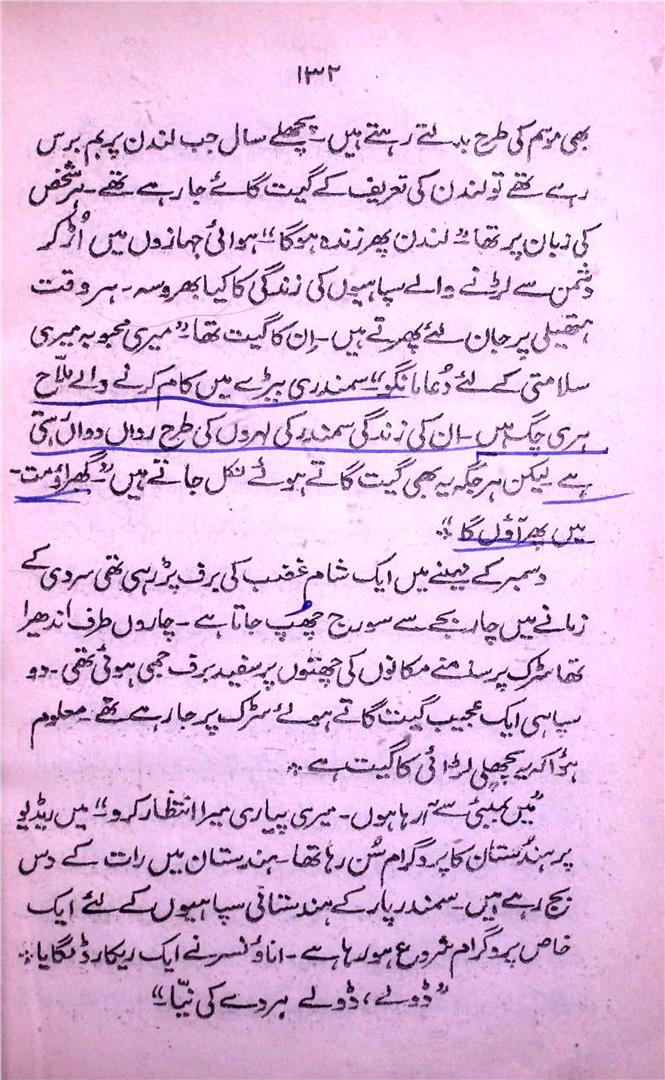 ۱۳۲
بھی موسم کی طرح بدلتے رہتے ہیں۔ پچھلے سال جب لندن پر بم برس
رہے تھے تو لندن کی تعریف کے گیت گائے جا رہے تھے۔ ہر شخص
کی زبان پر تھا "لندن پھر زندہ ہوگا" ہوائی جہازوں میں اُڑ کر
دشمن سے لڑنے والے سپاہیوں کی زندگی کا کیا بھروسہ۔ ہر وقت
ہتھیلی پر جان لئے پھرتے ہیں۔ اِن کا گیت تھا "میری محبوبہ میری
سلامتی کے لئے دُعا مانگو" سمندری بیڑے میں کام کرنے والے ملّاح
ہری چُگ ہیں۔ ان کی زندگی سمندر کی لہروں کی طرح رواں دواں رہتی
ہے لیکن ہر جگہ یہ بھی گیت گاتے ہوئے نکل جاتے ہیں "۔ گھبراؤ مت۔
میں پھر آؤں گا"
دسمبر کے مہینے میں ایک شام غضب کی برف پڑ رہی تھی سردی کے
زمانے میں چار بجے سے سورج چھُپ جاتا ہے۔ چاروں طرف اندھیرا
تھا سڑک پر سامنے مکانوں کی چھتوں پر سفید برف جمی ہوئی تھی۔ دو
سپاہی ایک عجیب گیت گاتے ہوئے سڑک پر جا رہے تھے۔ معلوم
ہؤا کہ یہ پچھلی لڑائی کا گیت ہے
"میں بمبئی سے آ رہا ہوں۔ میری پیاری میرا انتظار کرو" میں ریڈیو
پر ہندُستان کا پروگرام سُن رہا تھا۔ ہندستان میں رات کے دس
بج رہے ہیں۔ سمندر پار کے ہندستانی سپاہیوں کے لئے ایک
خاص پروگرام شروع ہو رہا ہے۔ اناؤنسر نے ایک ریکارڈ لگایا
"ڈولے، ڈولے ہردے کی نیّا۔"